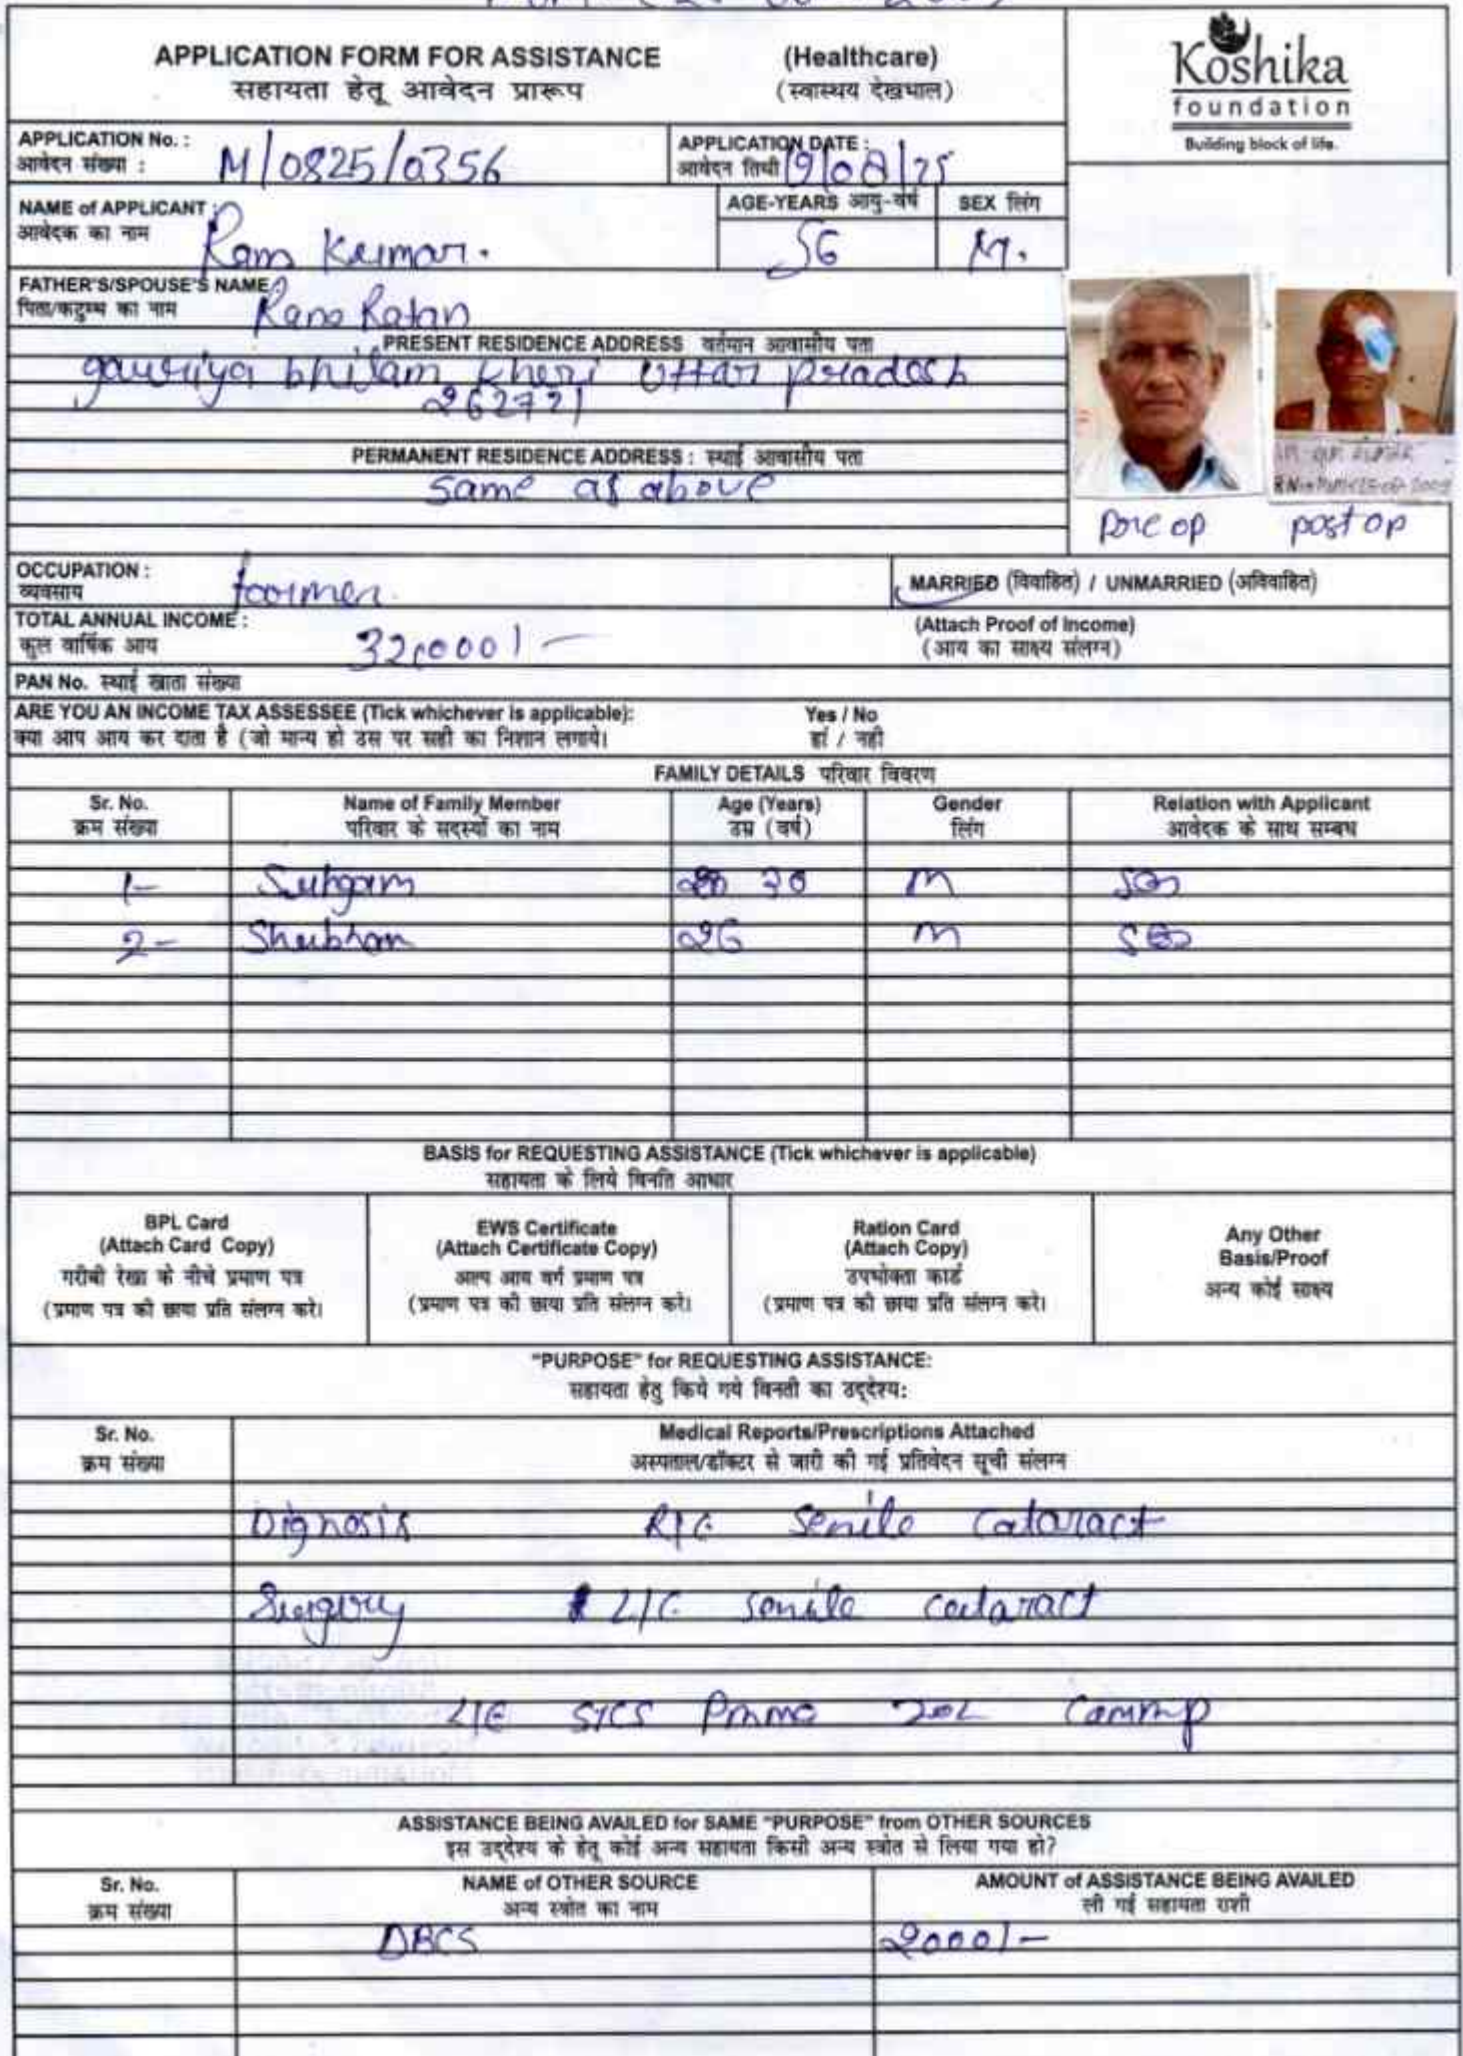 APPLICATION FORM FOR ASSISTANCE (Healthcare)
सहायता हेतू आवेदन प्रारूप (स्वास्थय देखभाल)
Koshika
foundation
Building block of life.
APPLICATION No. :
आवेदन संख्या : M/0825/0356
APPLICATION DATE :
आवेदन तिथी 19/08/25
NAME of APPLICANT :
आवेदक का नाम Ram Kumar.
AGE-YEARS आयु-वर्ष 56
SEX लिंग M.
FATHER'S/SPOUSE'S NAME
पिता/कटुम्ब का नाम Ram Ratan
PRESENT RESIDENCE ADDRESS वर्तमान आवासीय पता
gauriya bhilam kheri Uttar pradesh
262721
PERMANENT RESIDENCE ADDRESS : स्थाई आवासीय पता
Same as above
pre op post op
OCCUPATION :
व्यवसाय farmer
MARRIED (विवाहित) / UNMARRIED (अविवाहित)
TOTAL ANNUAL INCOME :
कुल वार्षिक आय 320001-
(Attach Proof of Income)
(आय का साक्ष्य संलग्न)
PAN No. स्थाई खाता संख्या
ARE YOU AN INCOME TAX ASSESSEE (Tick whichever is applicable): Yes / No
क्या आप आय कर दाता है (जो मान्य हो उस पर सही का निशान लगाये। हां / नही
FAMILY DETAILS परिवार विवरण
Sr. No. Name of Family Member Age (Years) Gender Relation with Applicant
क्रम संख्या परिवार के सदस्यों का नाम उम्र (वर्ष) लिंग आवेदक के साथ सम्बध
1- Suhgam 30 M Son
2- Shubham 26 M Son
BASIS for REQUESTING ASSISTANCE (Tick whichever is applicable)
सहायता के लिये विनति आधार
BPL Card
(Attach Card Copy)
गरीबी रेखा के नीचे प्रमाण पत्र
(प्रमाण पत्र की छाया प्रति संलग्न करे।
EWS Certificate
(Attach Certificate Copy)
अल्प आय वर्ग प्रमाण पत्र
(प्रमाण पत्र की छाया प्रति संलग्न करे।
Ration Card
(Attach Copy)
उपभोक्ता कार्ड
(प्रमाण पत्र की छाया प्रति संलग्न करे।
Any Other
Basis/Proof
अन्य कोई साक्ष्य
"PURPOSE" for REQUESTING ASSISTANCE:
सहायता हेतु किये गये विनती का उद्देश्य:
Sr. No. Medical Reports/Prescriptions Attached
क्रम संख्या अस्पताल/डॉक्टर से जारी की गई प्रतिवेदन सूची संलग्न
Dignosis R/E Senile Cataract
Surgery L/E senile cataract
L/E SICS Pmma IOL Cammp
ASSISTANCE BEING AVAILED for SAME "PURPOSE" from OTHER SOURCES
इस उद्देश्य के हेतू कोई अन्य सहायता किसी अन्य स्त्रोत से लिया गया हो?
Sr. No. NAME of OTHER SOURCE AMOUNT of ASSISTANCE BEING AVAILED
क्रम संख्या अन्य स्त्रोत का नाम ली गई सहायता राशी
DBCS 20001-